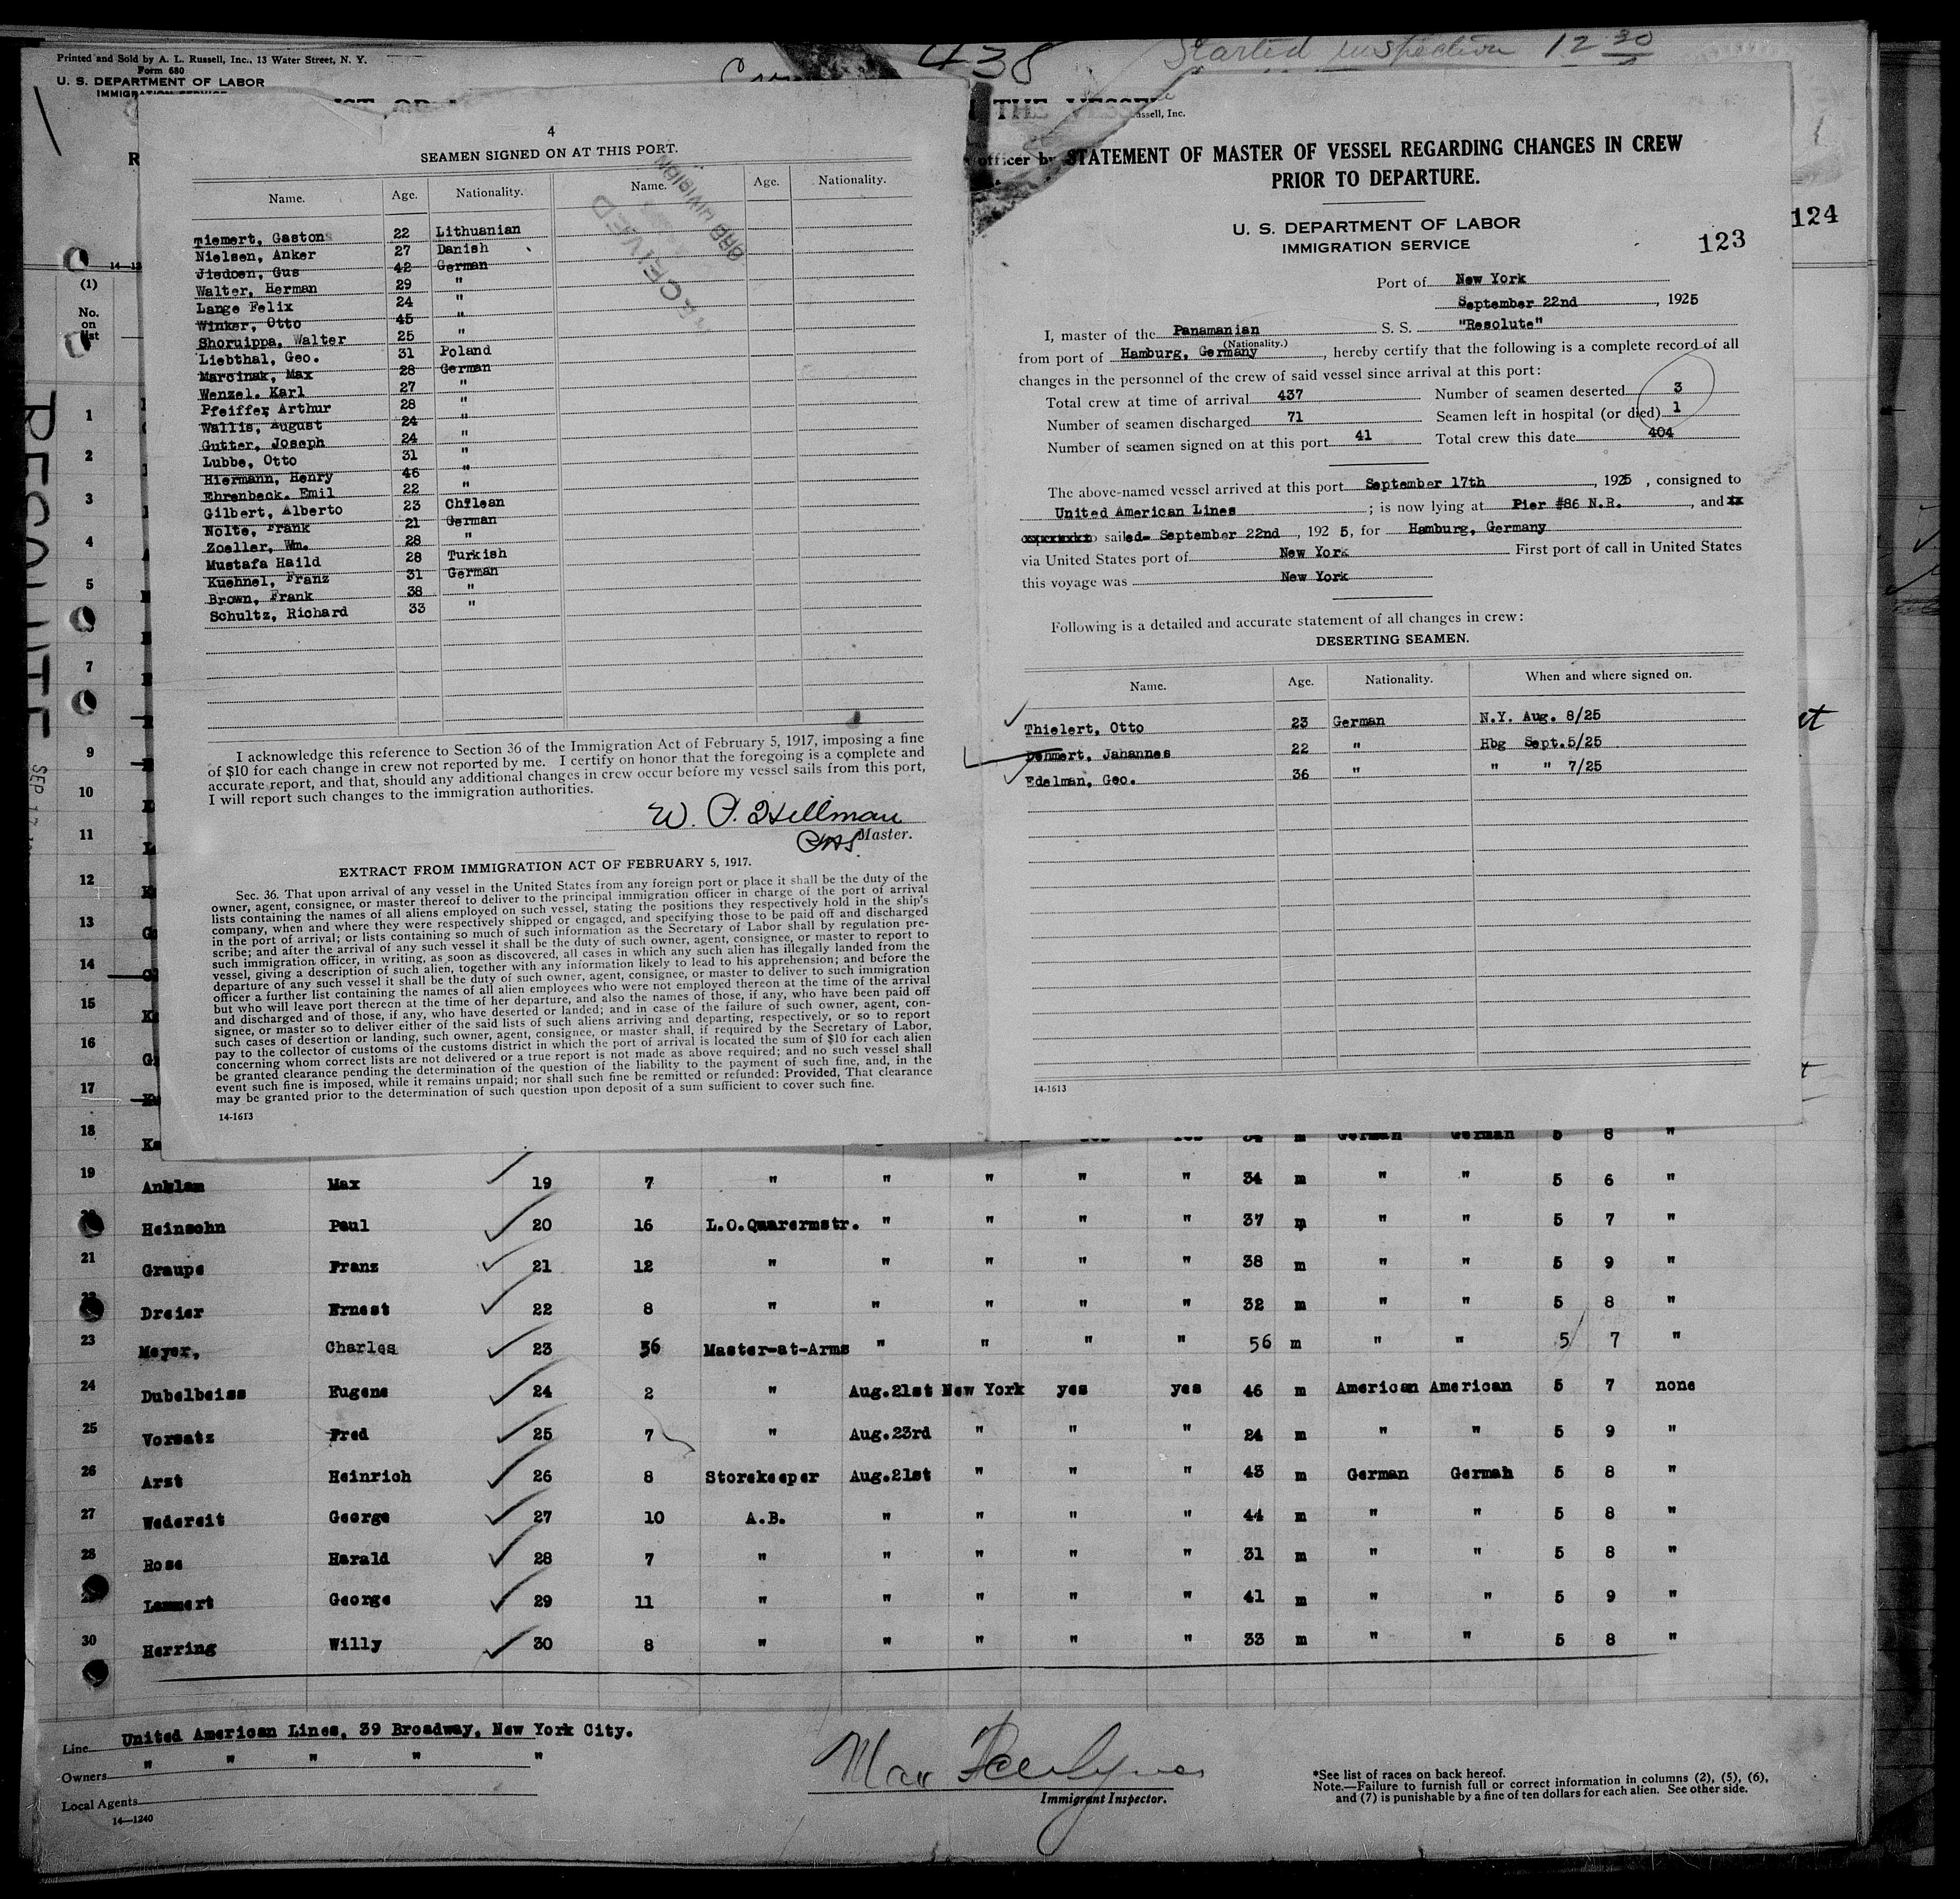 Printed and Sold by A. L. Russell, Inc., 13 Water Street, N. Y.
Form 680
U. S. DEPARTMENT OF LABOR
IMMIGRATION SERVICE
438
Started inspection 12 30
THE VESSEL
124
4
SEAMEN SIGNED ON AT THIS PORT.
Name. Age. Nationality. Name. Age. Nationality.
Tiemert, Gaston 22 Lithuanian
Nielsen, Anker 27 Danish
Jiedoen, Gus 42 German
Walter, Herman 29 "
Lange Felix 24 "
Winker, Otto 45 "
Shoruippa, Walter 25 "
Liebthal, Geo. 31 Poland
Marcinak, Max 28 German
Wenzel. Karl 27 "
Pfeiffer, Arthur 28 "
Wallis, August 24 "
Gutter, Joseph 24 "
Lubbe, Otto 31 "
Hiermann, Henry 46 "
Ehrenbeck. Emil 22 "
Gilbert, Alberto 23 Chilean
Nolte, Frank 21 German
Zoeller, Wm. 28 "
Mustafa Haild 28 Turkish
Kuehnel, Franz 31 German
Brown, Frank 38 "
Schultz, Richard 33 "
I acknowledge this reference to Section 36 of the Immigration Act of February 5, 1917, imposing a fine
of $10 for each change in crew not reported by me. I certify on honor that the foregoing is a complete and
accurate report, and that, should any additional changes in crew occur before my vessel sails from this port,
I will report such changes to the immigration authorities.
Master.
EXTRACT FROM IMMIGRATION ACT OF FEBRUARY 5, 1917.
Sec. 36. That upon arrival of any vessel in the United States from any foreign port or place it shall be the duty of the
owner, agent, consignee, or master thereof to deliver to the principal immigration officer in charge of the port of arrival
lists containing the names of all aliens employed on such vessel, stating the positions they respectively hold in the ship's
company, when and where they were respectively shipped or engaged, and specifying those to be paid off and discharged
in the port of arrival; or lists containing so much of such information as the Secretary of Labor shall by regulation pre-
scribe; and after the arrival of any such vessel it shall be the duty of such owner, agent, consignee, or master to report to
such immigration officer, in writing, as soon as discovered, all cases in which any such alien has illegally landed from the
vessel, giving a description of such alien, together with any information likely to lead to his apprehension; and before the
departure of any such vessel it shall be the duty of such owner, agent, consignee, or master to deliver to such immigration
officer a further list containing the names of all alien employees who were not employed thereon at the time of the arrival
but who will leave port thereon at the time of her departure, and also the names of those, if any, who have been paid off
and discharged and of those, if any, who have deserted or landed; and in case of the failure of such owner, agent, con-
signee, or master so to deliver either of the said lists of such aliens arriving and departing, respectively, or so to report
such cases of desertion or landing, such owner, agent, consignee, or master shall, if required by the Secretary of Labor,
pay to the collector of customs of the customs district in which the port of arrival is located the sum of $10 for each alien
concerning whom correct lists are not delivered or a true report is not made as above required; and no such vessel shall
be granted clearance pending the determination of the question of the liability to the payment of such fine, and, in the
event such fine is imposed, while it remains unpaid; nor shall such fine be remitted or refunded: Provided, That clearance
may be granted prior to the determination of such question upon deposit of a sum sufficient to cover such fine.
14-1613
STATEMENT OF MASTER OF VESSEL REGARDING CHANGES IN CREW
PRIOR TO DEPARTURE.
U. S. DEPARTMENT OF LABOR
IMMIGRATION SERVICE
123
Port of New York
September 22nd, 1925
I, master of the Panamanian S. S. "Resolute"
(Nationality.)
from port of Hamburg, Germany, hereby certify that the following is a complete record of all
changes in the personnel of the crew of said vessel since arrival at this port:
Total crew at time of arrival 437 Number of seamen deserted 3
Number of seamen discharged 71 Seamen left in hospital (or died) 1
Number of seamen signed on at this port 41 Total crew this date 404
The above-named vessel arrived at this port September 17th, 1925, consigned to
United American Lines; is now lying at Pier #86 N.R., and
sailed- September 22nd, 1925, for Hamburg, Germany
via United States port of New York First port of call in United States
this voyage was New York
Following is a detailed and accurate statement of all changes in crew:
DESERTING SEAMEN.
Name. Age. Nationality. When and where signed on.
Thielert, Otto 23 German N.Y. Aug. 8/25
Dehmert, Jahannes 22 " Hbg Sept.5/25
Edelman, Geo. 36 " " " 7/25
14-1613
(1)
No.
on
list
RESOLUTE
SEP 17
1
2
3
4
5
7
9
10
11
12
13
14
15
16
17
18 German German 5 8 "
19 Anklam Max 19 7 " " " " " 34 m " " 5 6 "
Heinsohn Paul 20 16 L.O.Quarermstr. " " " " 37 m " " 5 7 "
21 Graupe Franz 21 12 " " " " " 38 m " " 5 9 "
Dreier Ernest 22 8 " " " " " 32 m " " 5 8 "
23 Meyer, Charles 23 36 Master-at-Arms " " " " 56 m " " 5 7 "
24 Dubelbeiss Eugene 24 2 " Aug.21st New York yes yes 46 m American American 5 7 none
25 Vorsatz Fred 25 7 " Aug.23rd " " " 24 m " " 5 9 "
26 Arst Heinrich 26 8 Storekeeper Aug.21st " " " 43 m German German 5 8 "
27 Wedereit George 27 10 A.B. " " " " 44 m " " 5 8 "
28 Rose Harald 28 7 " " " " " 31 m " " 5 8 "
Lammert George 29 11 " " " " " 41 m " " 5 9 "
30 Herring Willy 30 8 " " " " " 33 m " " 5 8 "
Line United American Lines, 39 Broadway, New York City.
Owners " " " " "
Local Agents
14—1240
Immigrant Inspector.
*See list of races on back hereof.
Note.—Failure to furnish full or correct information in columns (2), (5), (6),
and (7) is punishable by a fine of ten dollars for each alien. See other side.